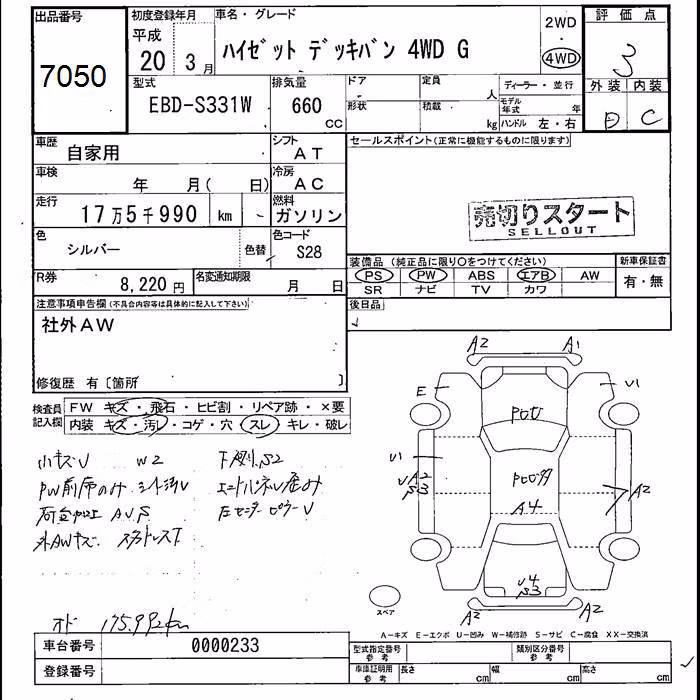 出品番号
7050
初度登録年月
平成
20 3月
車名・グレード
ハイゼット デッキバン 4WD G
2WD
・
4WD
評価点
3
型式
EBD-S331W
排気量
660
CC
ドア ・
形状
定員
人
積載
kg
ディーラー・並行
モデル年式 年
ハンドル 左・右
外装 内装
D C
車歴
自家用
シフト
AT
セールスポイント(正常に機能するものに限ります)
車検
年 月( 日)
冷房
AC
走行
17万5千990 km
燃料
ガソリン
売切りスタート
SELLOUT
色
シルバー
色替
色コード
S28
装備品(純正品に限り○をつけてください)
PS PW ABS エアB AW
SR ナビ TV カワ
新車保証書
有・無
R券
8,220円
名変通知期限
月 日
後日品
注意事項申告欄(不具合内容等は具体的に記入して下さい)
社外AW
修復歴 有〔箇所 〕
検査員
記入欄
FW キズ・飛石・ヒビ割・リペア跡・×要
内装 キズ・汚レ・コゲ・穴・スレ・キレ・破レ
小キズU W2 下廻りS2
PW前席のみ シート汚レ
AUS
外AWキズ スタッドレスT
オド 175.992km
A2 A1
E U1
U1
A2
S3
A4
A2
U4
S3
A2 A2
スペア
A-キズ E-エクボ U-凹み W-補修跡 S-サビ C-腐食 XX-交換済
車台番号
0000233
型式指定番号
参考
類別区分番号
参考
登録番号
車庫証明用
参考
長さ cm 幅 cm 高さ cm